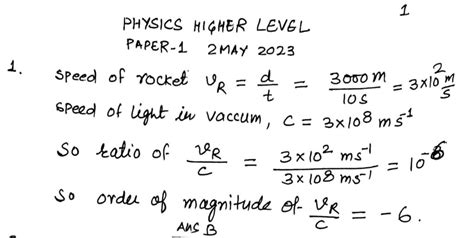 1
PHYSICS HIGHER LEVEL
PAPER-1 2 MAY 2023
1. Speed of rocket v_R = d/t = 3000 m/10 s = 3×10² m/s
speed of light in vaccum, C = 3×10⁸ ms⁻¹
So ratio of v_R/C = 3×10² ms⁻¹/3×10⁸ ms⁻¹ = 10⁻⁶
So order of magnitude of v_R/C = -6.
Ans B